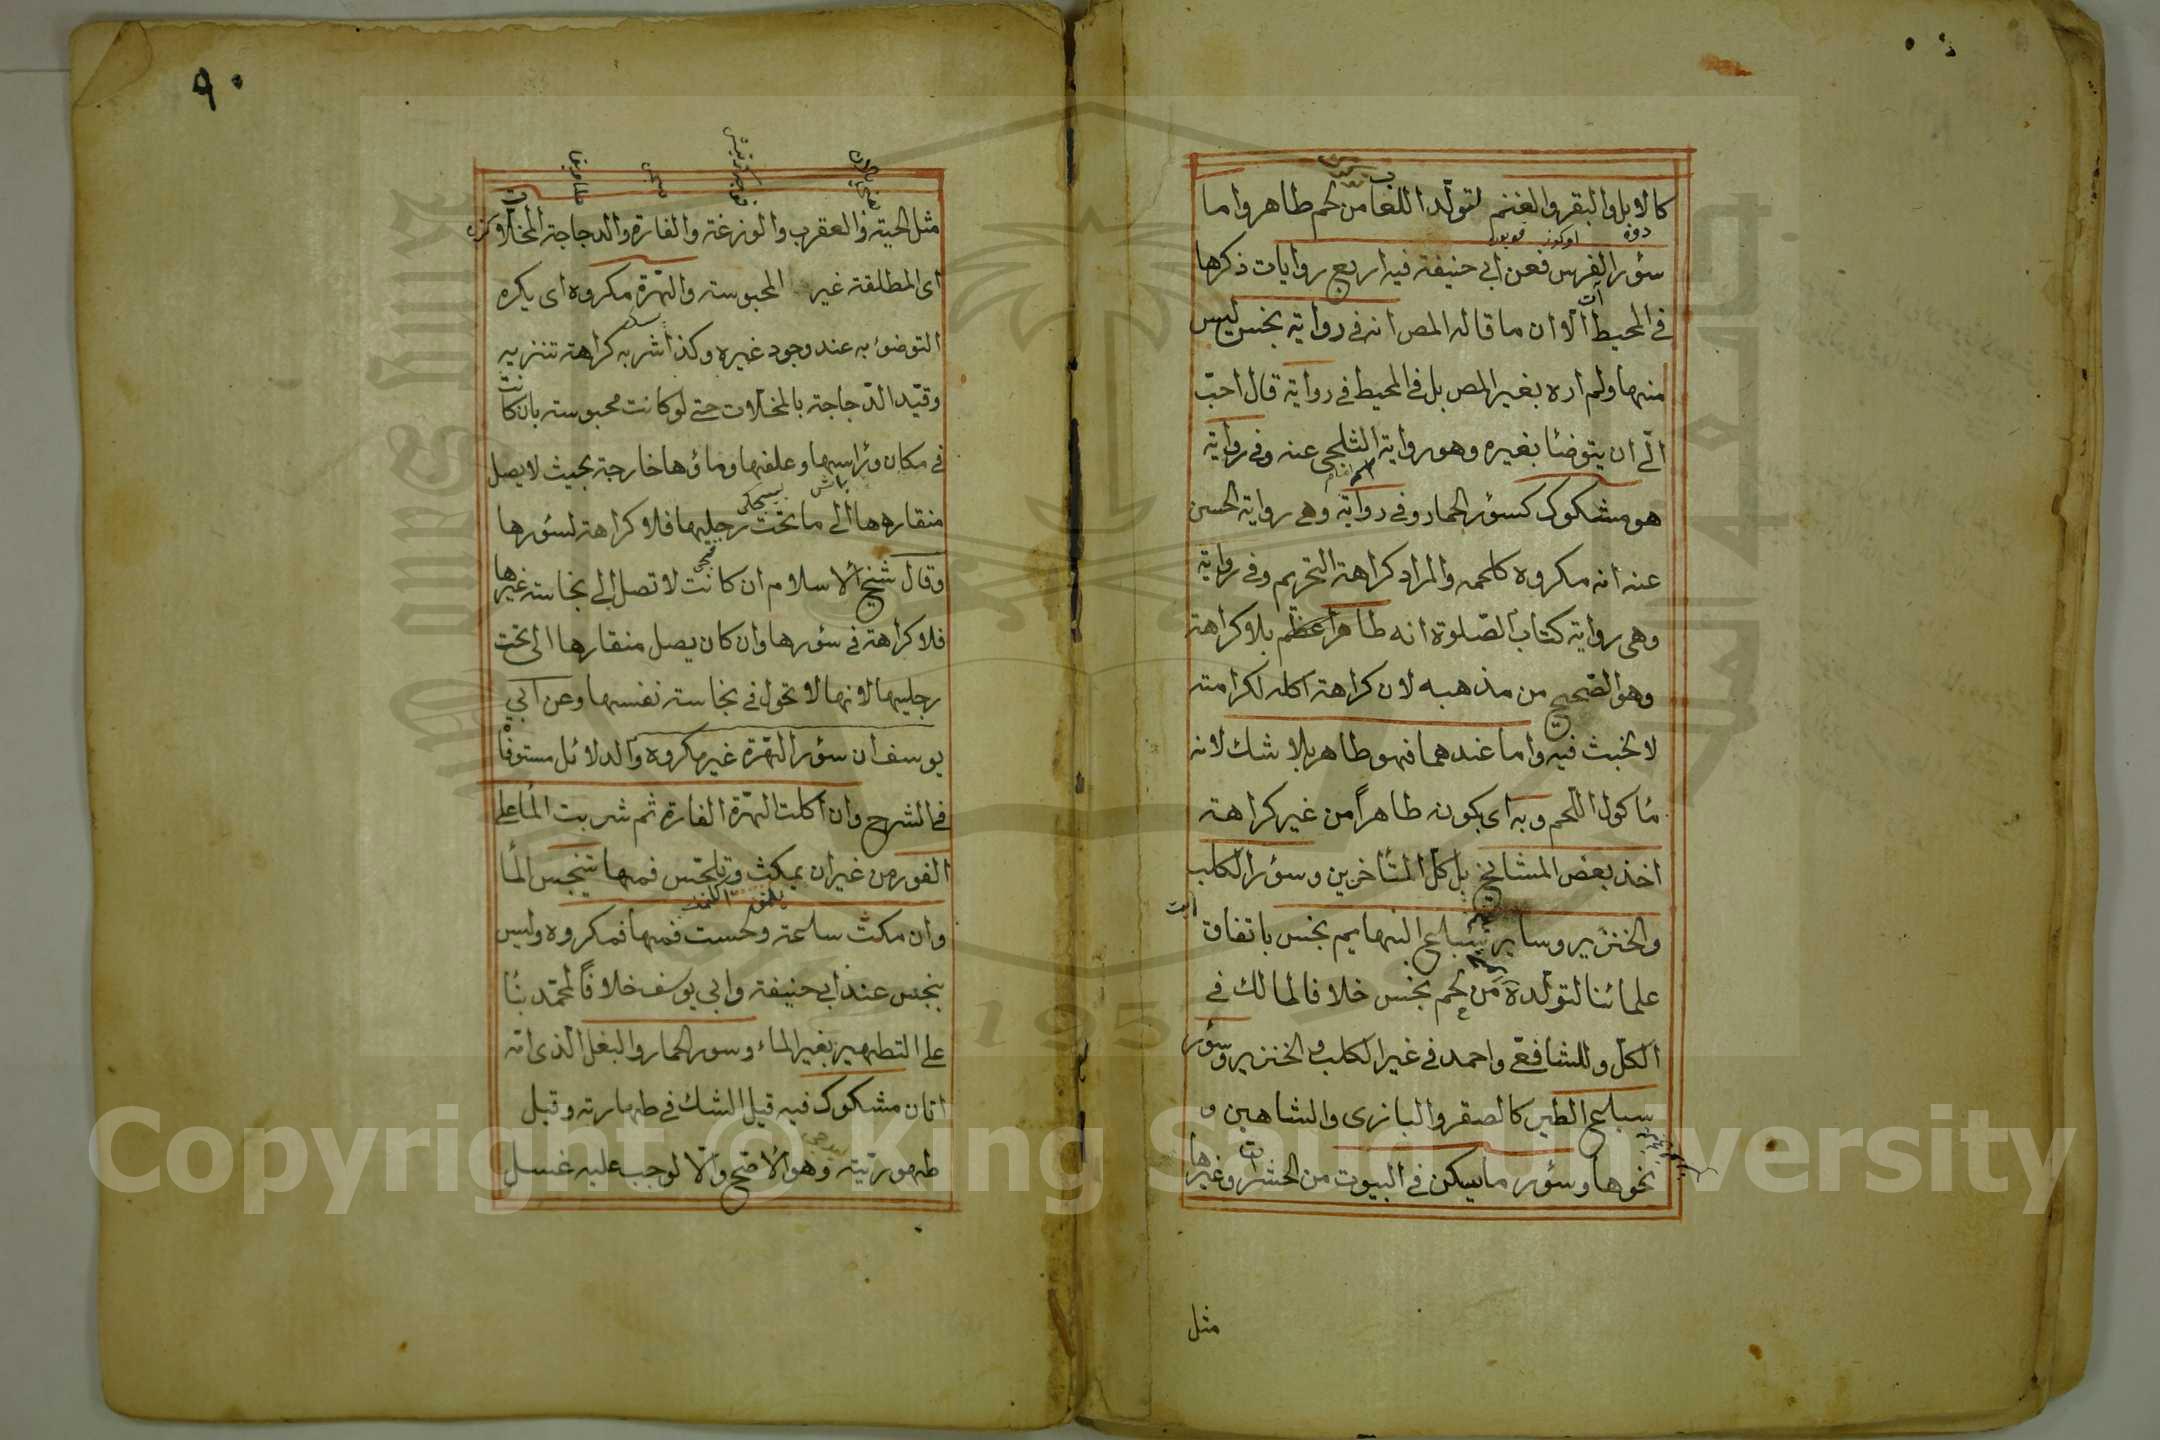 كالابل والبقر والغنم لتولد اللعاب من لحم طاهر واما
دوه اوكوز قويون
سؤر الفرس فعن ابي حنيفة فيه اربع روايات ذكرها
في المحيط الا ان ما قاله المص انه في رواية نجس ليس
منها ولم اره بغير المص بل في المحيط في رواية قال احبّ
الّي ان يتوضأ بغيره وهو رواية الثلجي عنه وفي رواية
هو مشكوك كسؤر الحمار وفي رواية وهي رواية الحسن
عنه انه مكروه كلحمه والمراد كراهة التحريم وفي رواية
وهي رواية كتاب الصلوة انه طاهر بلا كراهة
وهو الصحيح من مذهبه لان كراهة اكله لكرامته
لا لخبث فيه واما عندهما فهو طاهر بلا شك لانه
مأكول اللحم وبه اى بكونه طاهراً من غير كراهة
اخذ بعض المشايخ بل كل المتأخرين وسؤر الكلب
والخنزير وساير سباع البهايم نجس باتفاق
علمائنا لتولده من لحم نجس خلافا لمالك في
الكلّ وللشافعي واحمد في غير الكلب والخنزير وسؤر
سباع الطير كالصقر والبازى والشاهين و
نحوها وسؤر ما يسكن في البيوت من الحشرات وغيرها
مثل
٩٠
مثل الحية والعقرب والوزغة والفارة والدجاجة المخلاة
اى المطلقة غير المحبوسة والهرّة مكروه اى يكره
التوضؤ به عند وجود غيره وكذا شربه كراهة تنزيه
وقيّد الدّجاجة بالمخلّات حتى لو كانت محبوسة بان كانت
في مكان ورأسها وعلفها وماؤها خارجة بحيث لا يصل
منقارها الى ما تحت رجليها فلا كراهة لسؤرها
وقال شيخ الاسلام ان كانت لا تصل الى نجاسة غيرها
فلا كراهة في سؤرها وان كان يصل منقارها الى تحت
رجليها لانها لا تحول في نجاسة نفسها وعن ابي
يوسف ان سؤر الهرّة غير مكروه والدلائل مستوفاة
في الشرح وان اكلت الهرّة الفارة ثم شربت الماء على
الفور من غير ان يمكث وتلحس فمها تنجس الماء
وان مكثت ساعة ولحست فمها فمكروه وليس
بنجس عند ابي حنيفة وابي يوسف خلافاً لمحمّد بناء
على التطهير بغير الماء وسور الحمار والبغل الذى امّه
اتان مشكوك فيه قيل الشك في طهارته وقيل
طهوريّته وهو الاصّح والّا لوجب عليه غسل